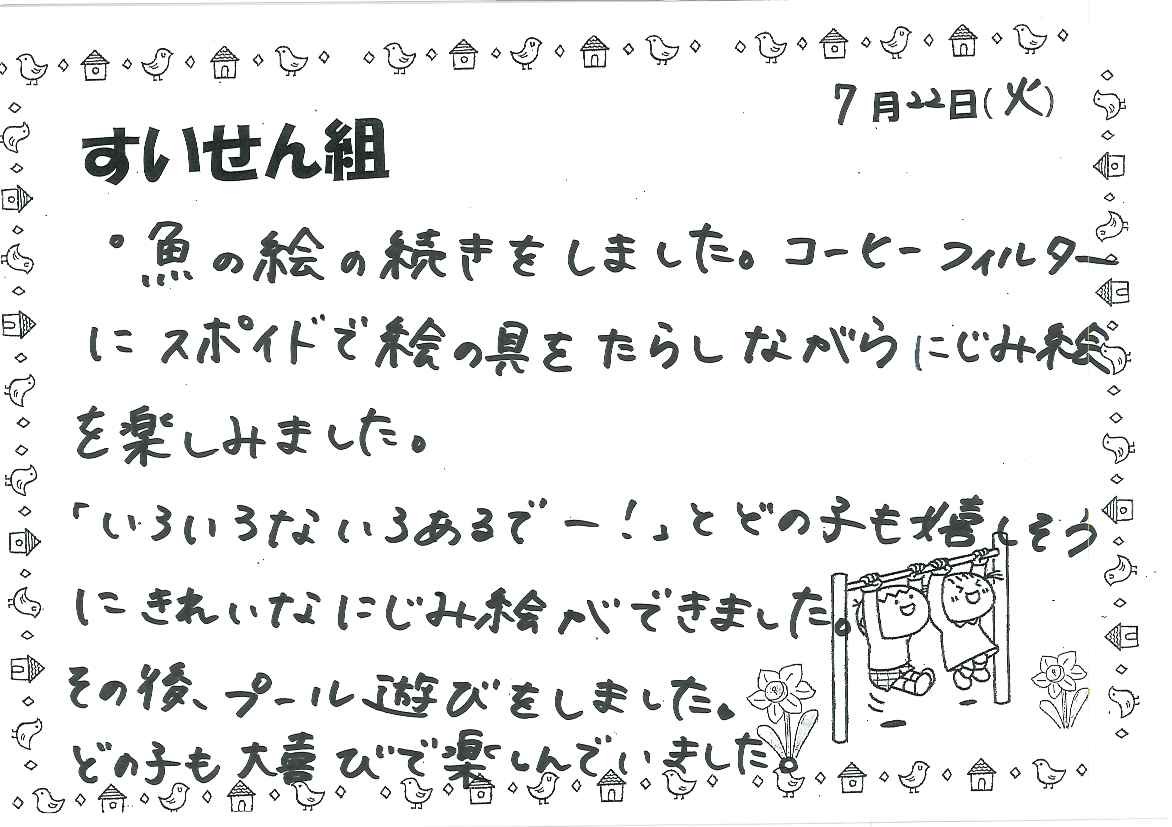 7月22日(火)
すいせん組
°魚の絵の続きをしました。コーヒーフィルター
にスポイドで絵の具をたらしながらにじみ絵
を楽しみました。
「いろいろないろあるでー!」とどの子も嬉しそう
にきれいなにじみ絵ができました。
その後、プール遊びをしました。
どの子も大喜びで楽しんでいました。